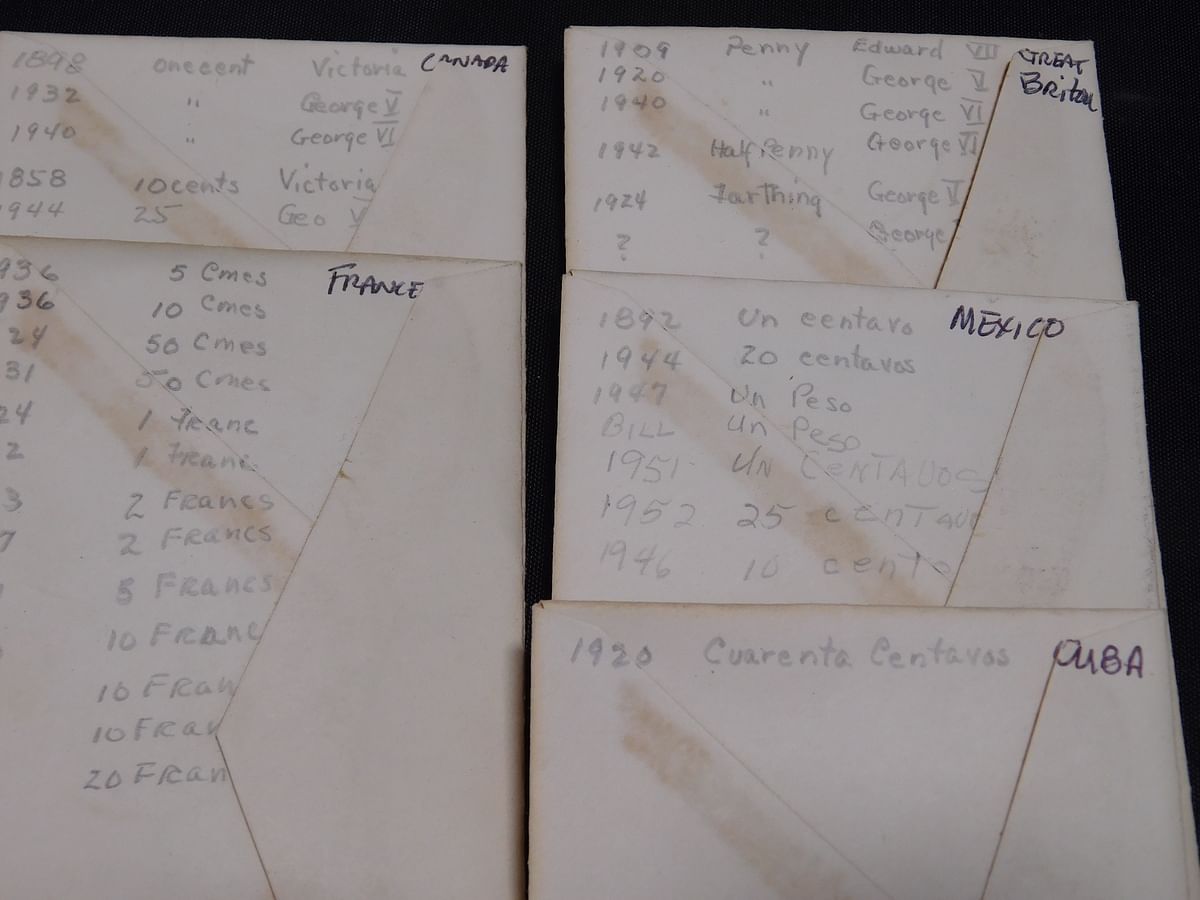 1898 one cent Victoria CANADA
1932 " George V
1940 " George VI
1858 10 cents Victoria
1944 25 Geo V
936 5 Cmes FRANCE
936 10 Cmes
24 50 Cmes
31 50 Cmes
24 1 Franc
2 1 Franc
3 2 Francs
7 2 Francs
5 Francs
10 Franc
10 Fran
10 Fran
20 Fran
1909 Penny Edward VII GREAT
1920 " George V Britan
1940 " George VI
1942 Half Penny George VI
1924 Farthing George V
? ? George
1892 Un centavo MEXICO
1944 20 centavos
1947 Un Peso
BILL Un Peso
1951 UN CENTAVOS
1952 25 CENTAVO
1946 10 cento
1920 Cuarenta Centavos CUBA